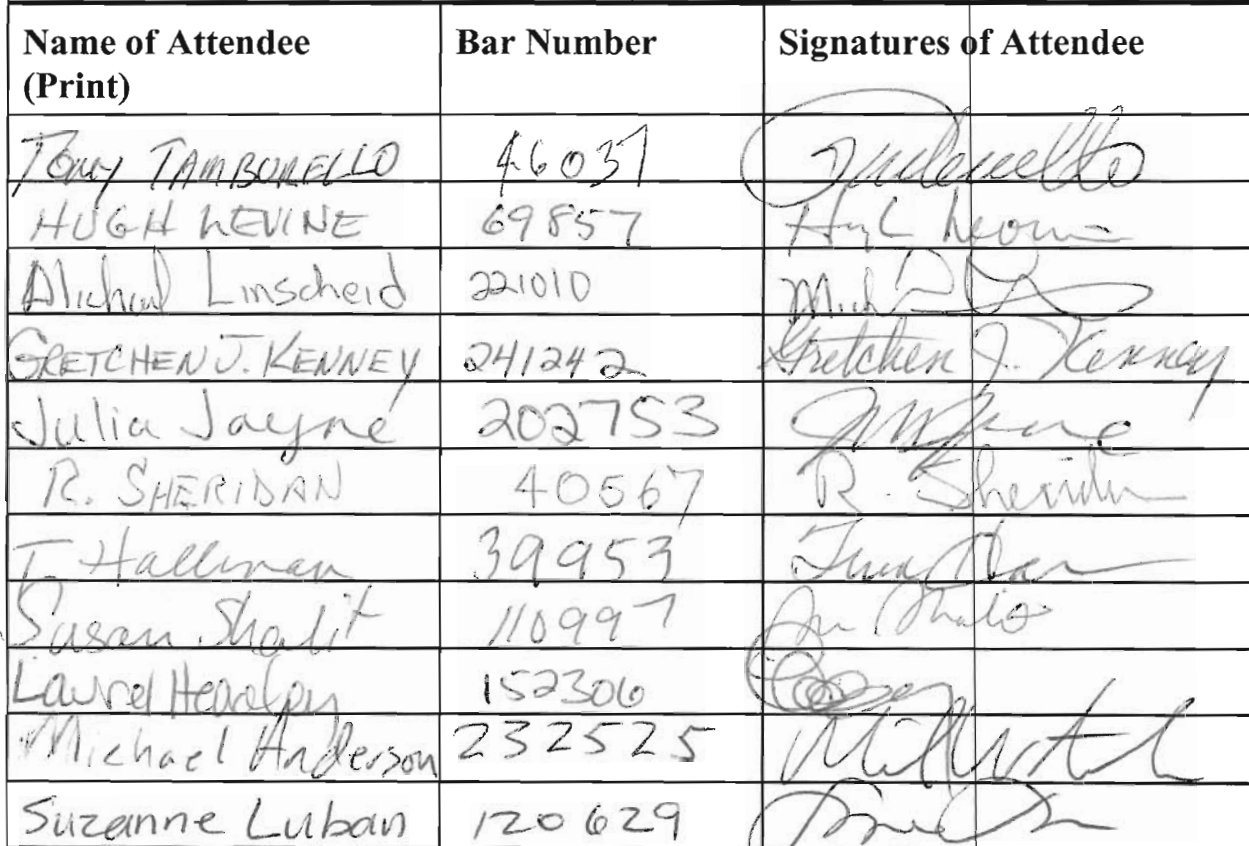 Name of Attendee (Print) Bar Number Signatures of Attendee
Tony TAMBURELLO 46037
HUGH LEVINE 69857
Michael Linscheid 221010
GRETCHEN J. KENNEY 241242 Gretchen J. Kenney
Julia Jayne 202753
R. SHERIDAN 40567 R. Sheridan
T. Hallinan 39953
Susan Shalit 110997
Laurel Headley 152306
Michael Anderson 232525
Suzanne Luban 120629